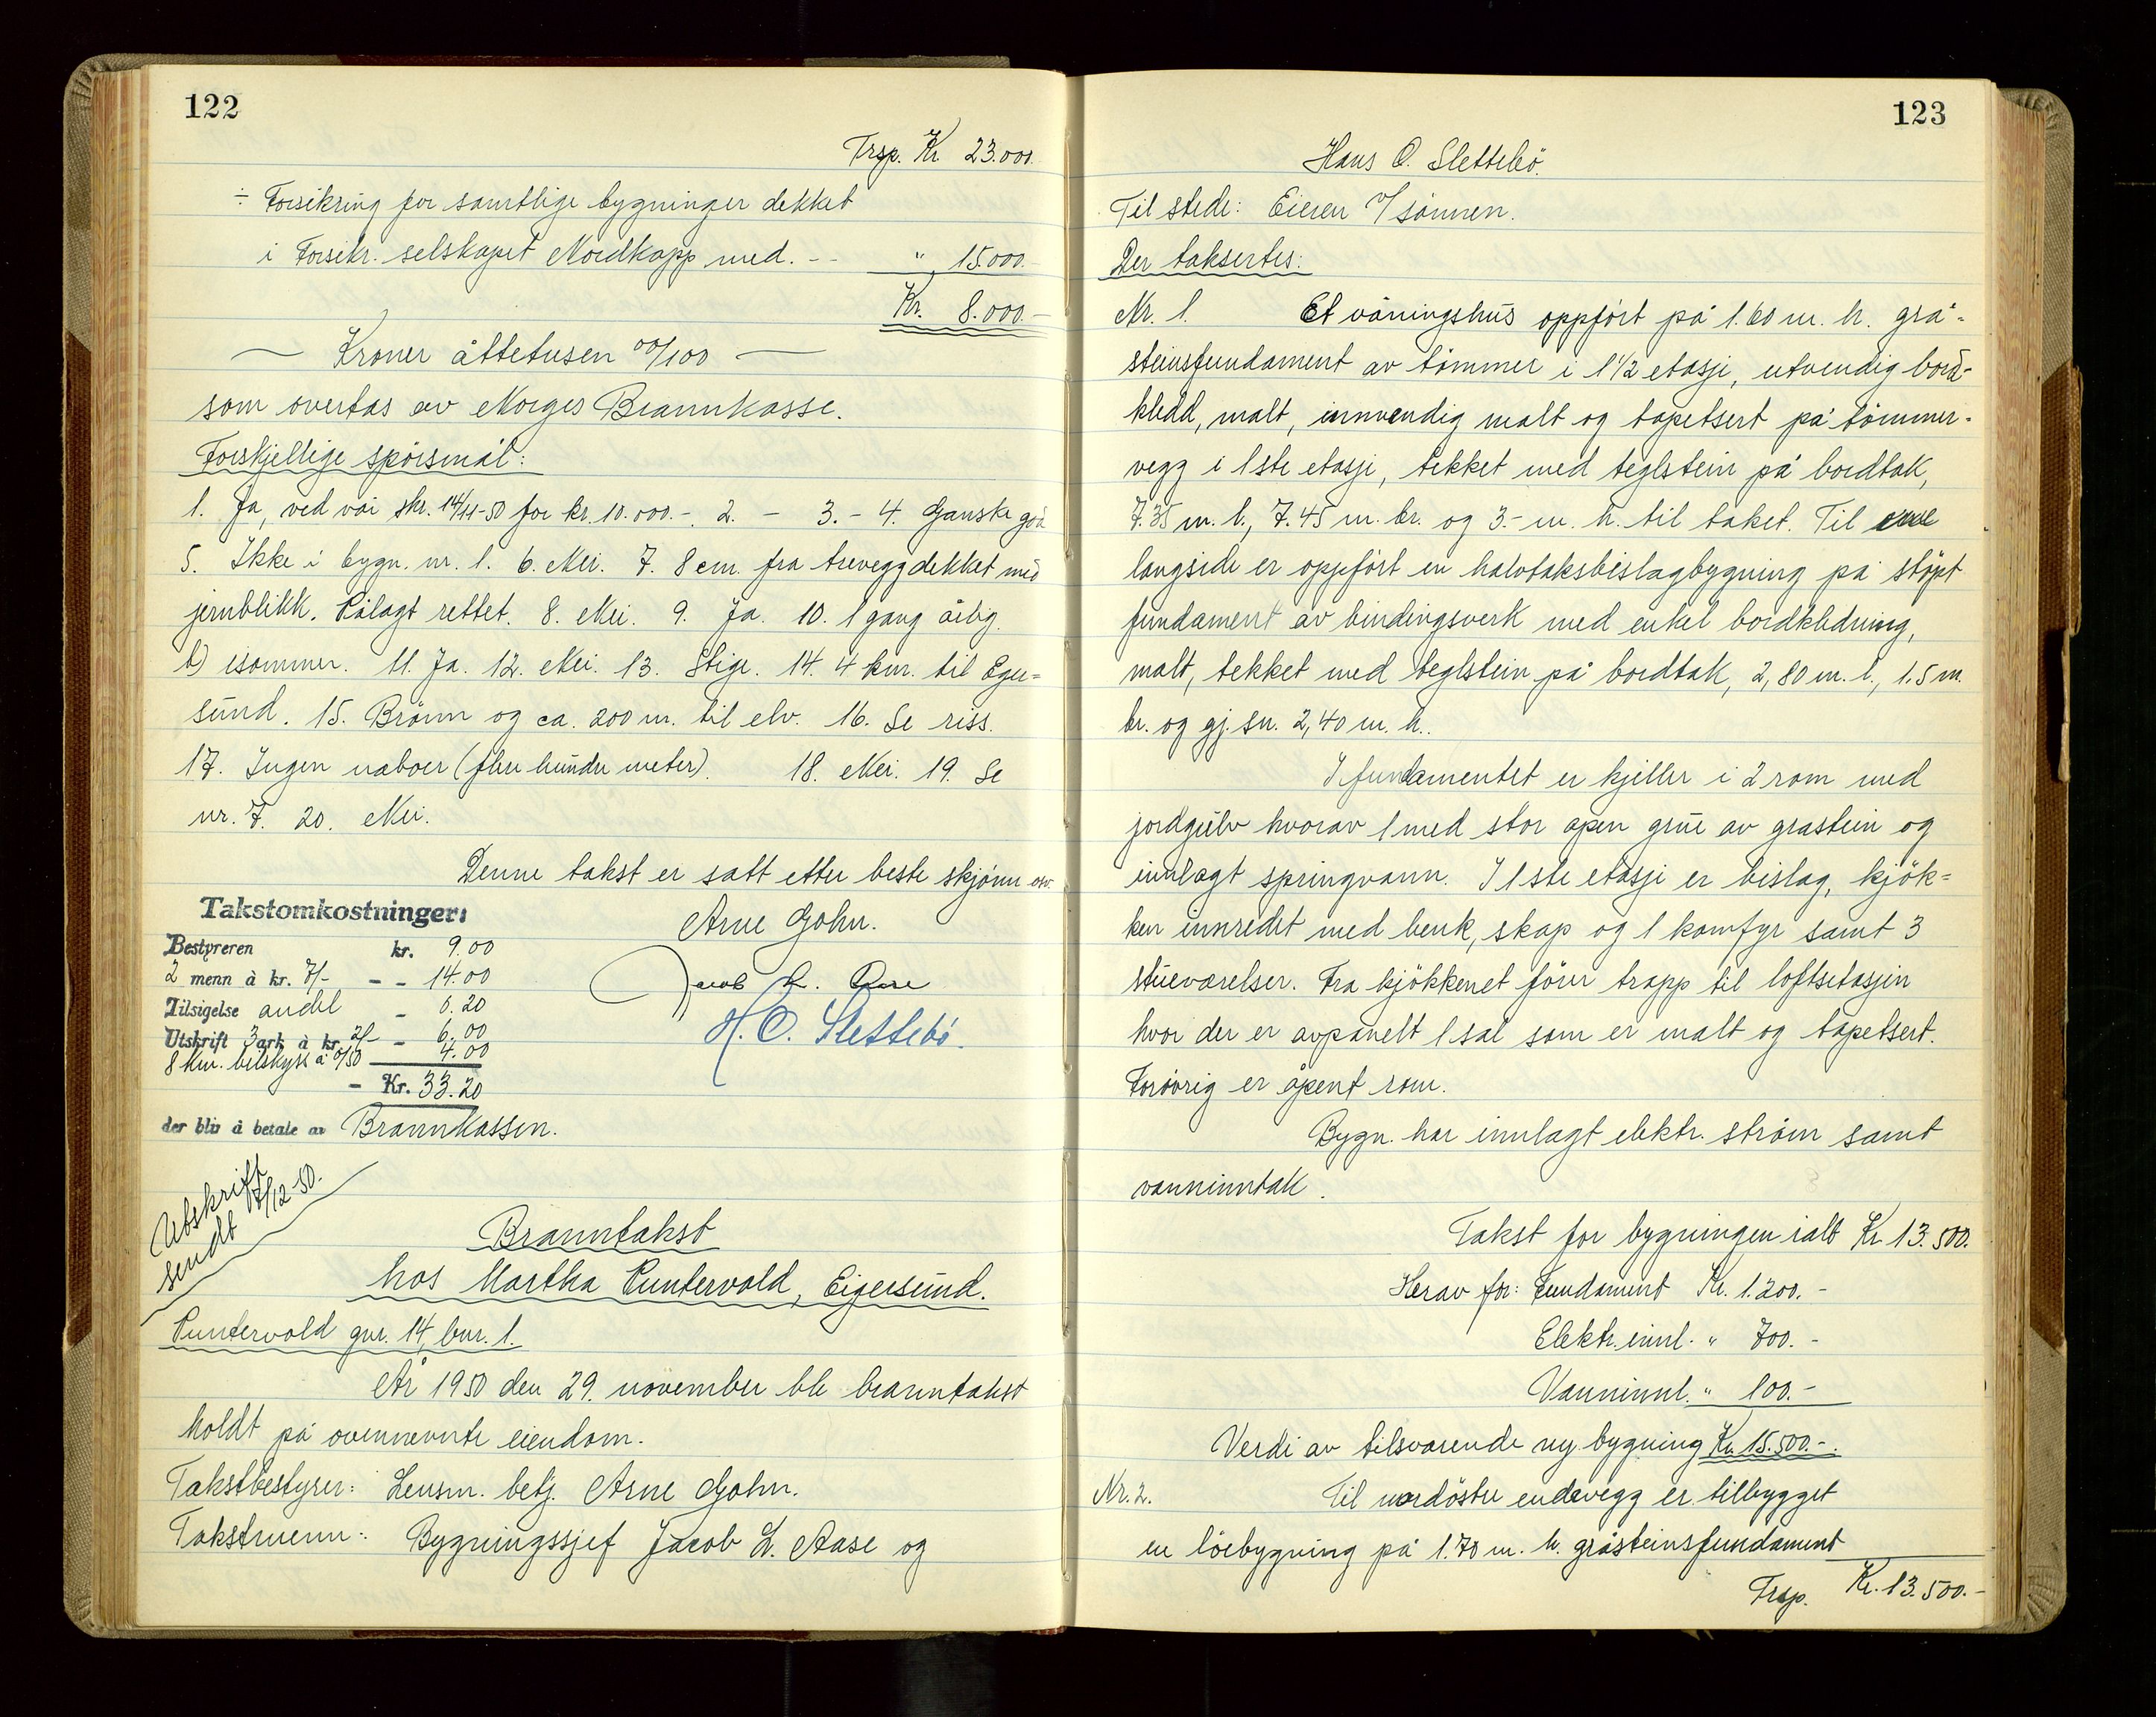 122
Trsp. Kr 23.000.
÷ Forsikring for samtlige bygninger dekket
i Forsikr. selskapet Nordkapp med. - - " 15.000.-
Kr. 8.000.-
— Kroner åttetusen 00/100 —
som overtas av Norges Brannkasse.
Forskjellige spörsmål:
1. Ja, ved vår skr. 14/11-50 for kr. 10.000.-. 2. - 3. - 4. Ganske god
5. Ikke i bygn. nr. 1. 6. Nei. 7. 8 cm. fra trevegg dekket med
jernblikk. Pålagt rettet. 8. Nei. 9. Ja. 10. 1 gang årlig.
b) isommer. 11. Ja. 12. Nei. 13. Stige. 14. 4 km. til Eger=
sund. 15. Brönn og ca. 200 m. til elv. 16. Se riss.
17. Ingen naboer (flere hundre meter). 18. Nei. 19. Se
nr. 7. 20. Nei.
Denne takst er satt etter beste skjönn osv.
Takstomkostninger:
Arne Gohn.
Bestyreren kr. 9.00
2 menn à kr. 7/- - - 14.00
Jacob L. Aase
Tilsigelse andel - 0.20
Utskrift 3 ark à kr. 2/- - 6.00
H. O. Slettebö.
8 km. bilskyss à 0/50 4.00
- Kr. 33.20
der blir å betale av Brannkassen.
Utskrift
sendt 17/12-50.
Branntakst
hos Martha Puntervold, Eigersund.
Puntervold gnr. 14, bnr. 1.
År 1950 den 29. november ble branntakst
holdt på ovennevnte eiendom.
Takstbestyrer: Lensm. betj. Arne Gohn.
Takstmenn: Bygningssjef Jacob L. Aase og
123
Hans O. Slettebö.
Til stede: Eieren v/ sönnen.
Der taksertes:
Nr. 1. Et våningshus oppfört på 1.60 m. h. grå=
steinsfundament av tömmer i 1 1/2 etasje, utvendig bord-
kledd, malt, innvendig malt og tapetsert på tömmer-
vegg i 1ste etasje, tekket med teglstein på bordtak,
7.35 m. l., 7.45 m. br. og 3.- m. h. til taket. Til ene
langside er oppfört en halvtaksbislagbygning på stöpt
fundament av bindingsverk med enkel bordkledning,
malt, tekket med teglstein på bordtak, 2,80 m. l., 1.5 m.
br. og gj. sn. 2,40 m. h..
I fundamentet er kjeller i 2 rom med
jordgulv hvorav 1 med stor åpen grue av gråstein og
innlagt springvann. I 1ste etasje er bislag, kjök=
ken innredet med benk, skap og 1 komfyr samt 3
stueværelser. Fra kjökkenet förer trapp til loftsetasjen
hvor der er avpanelt 1 sal som er malt og tapetsert.
Forövrig er åpent rom.
Bygn. har innlagt elektr. ström samt
vanninntak.
Takst for bygningen ialt Kr. 13.500.
Herav for: Fundament Kr. 1.200.-
Elektr. innl. " 700.-
Vanninnl. " 100.-
Verdi av tilsvarende ny bygning Kr. 15.500.-.
Nr. 2. Til nordöstre endevegg er tilbygget
en löebygning på 1.70 m. h. gråsteinsfundament
Trsp. Kr. 13.500.-